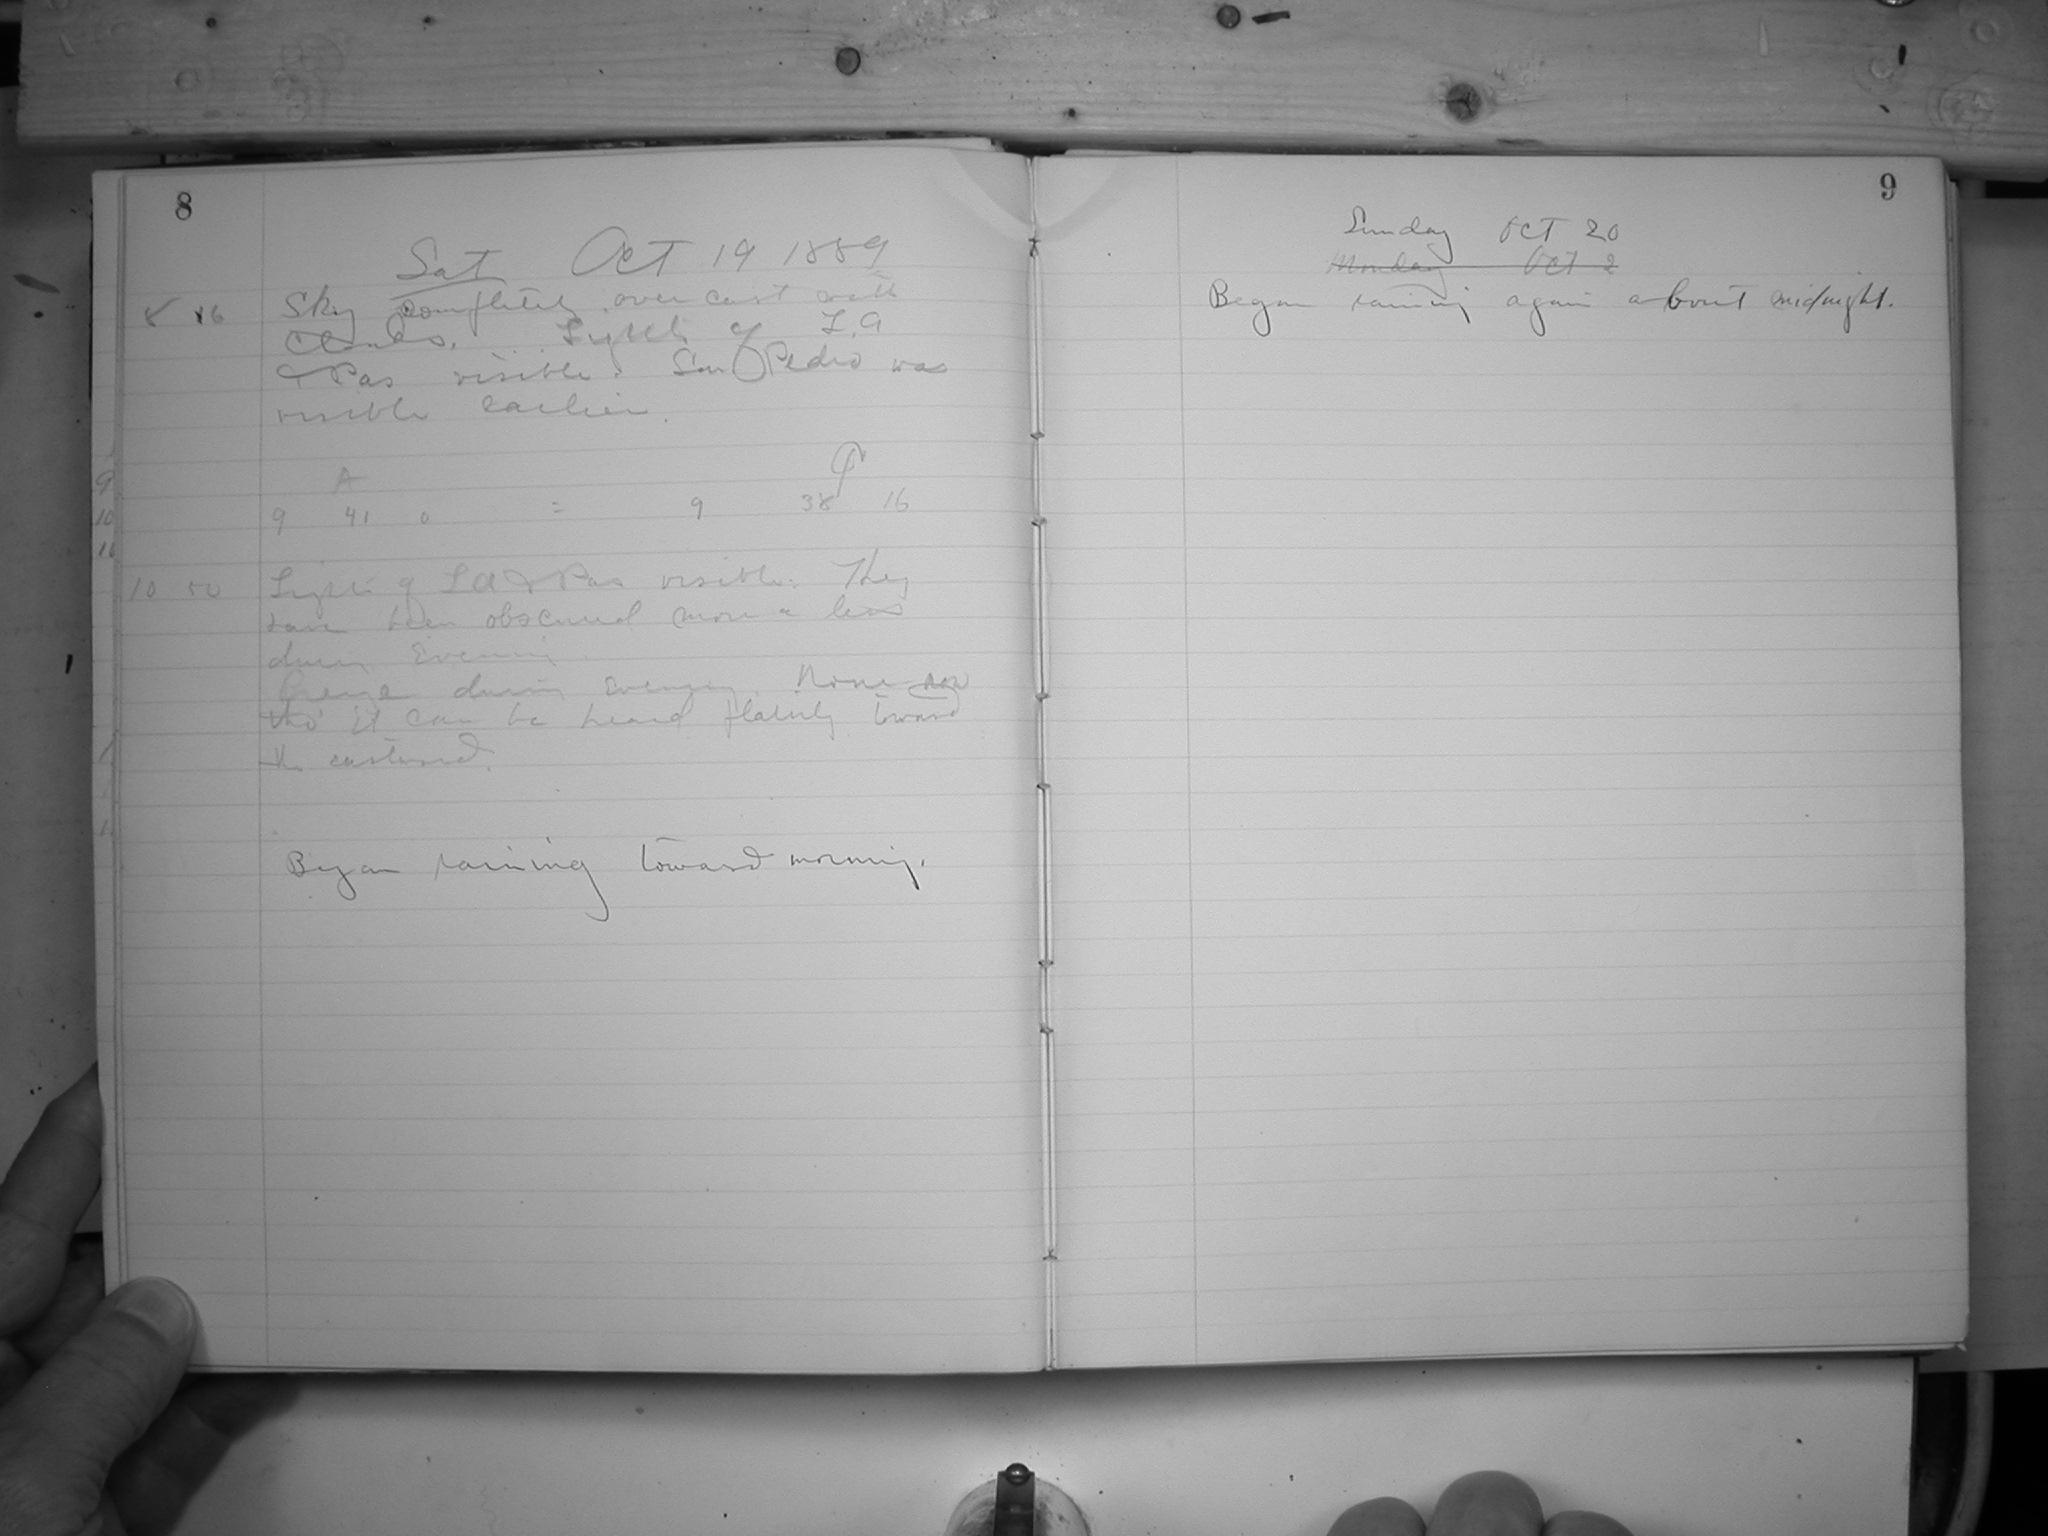 8
Sat Oct 19 1889
8 16 Sky completely overcast with
clouds. Lights of L.A
& Pas visible. San Pedro was
visible earlier.
A P
9 41 0 = 9 38 16
10 50 Lights of LA & Pas visible. They
have been obscured more or less
during Evening
Breeze during Evening. None now
tho' it can be heard plainly toward
the eastward.
Began raining toward morning.
9
10
11
9
Sunday Oct 20
Monday Oct 2
Began raining again about midnight.